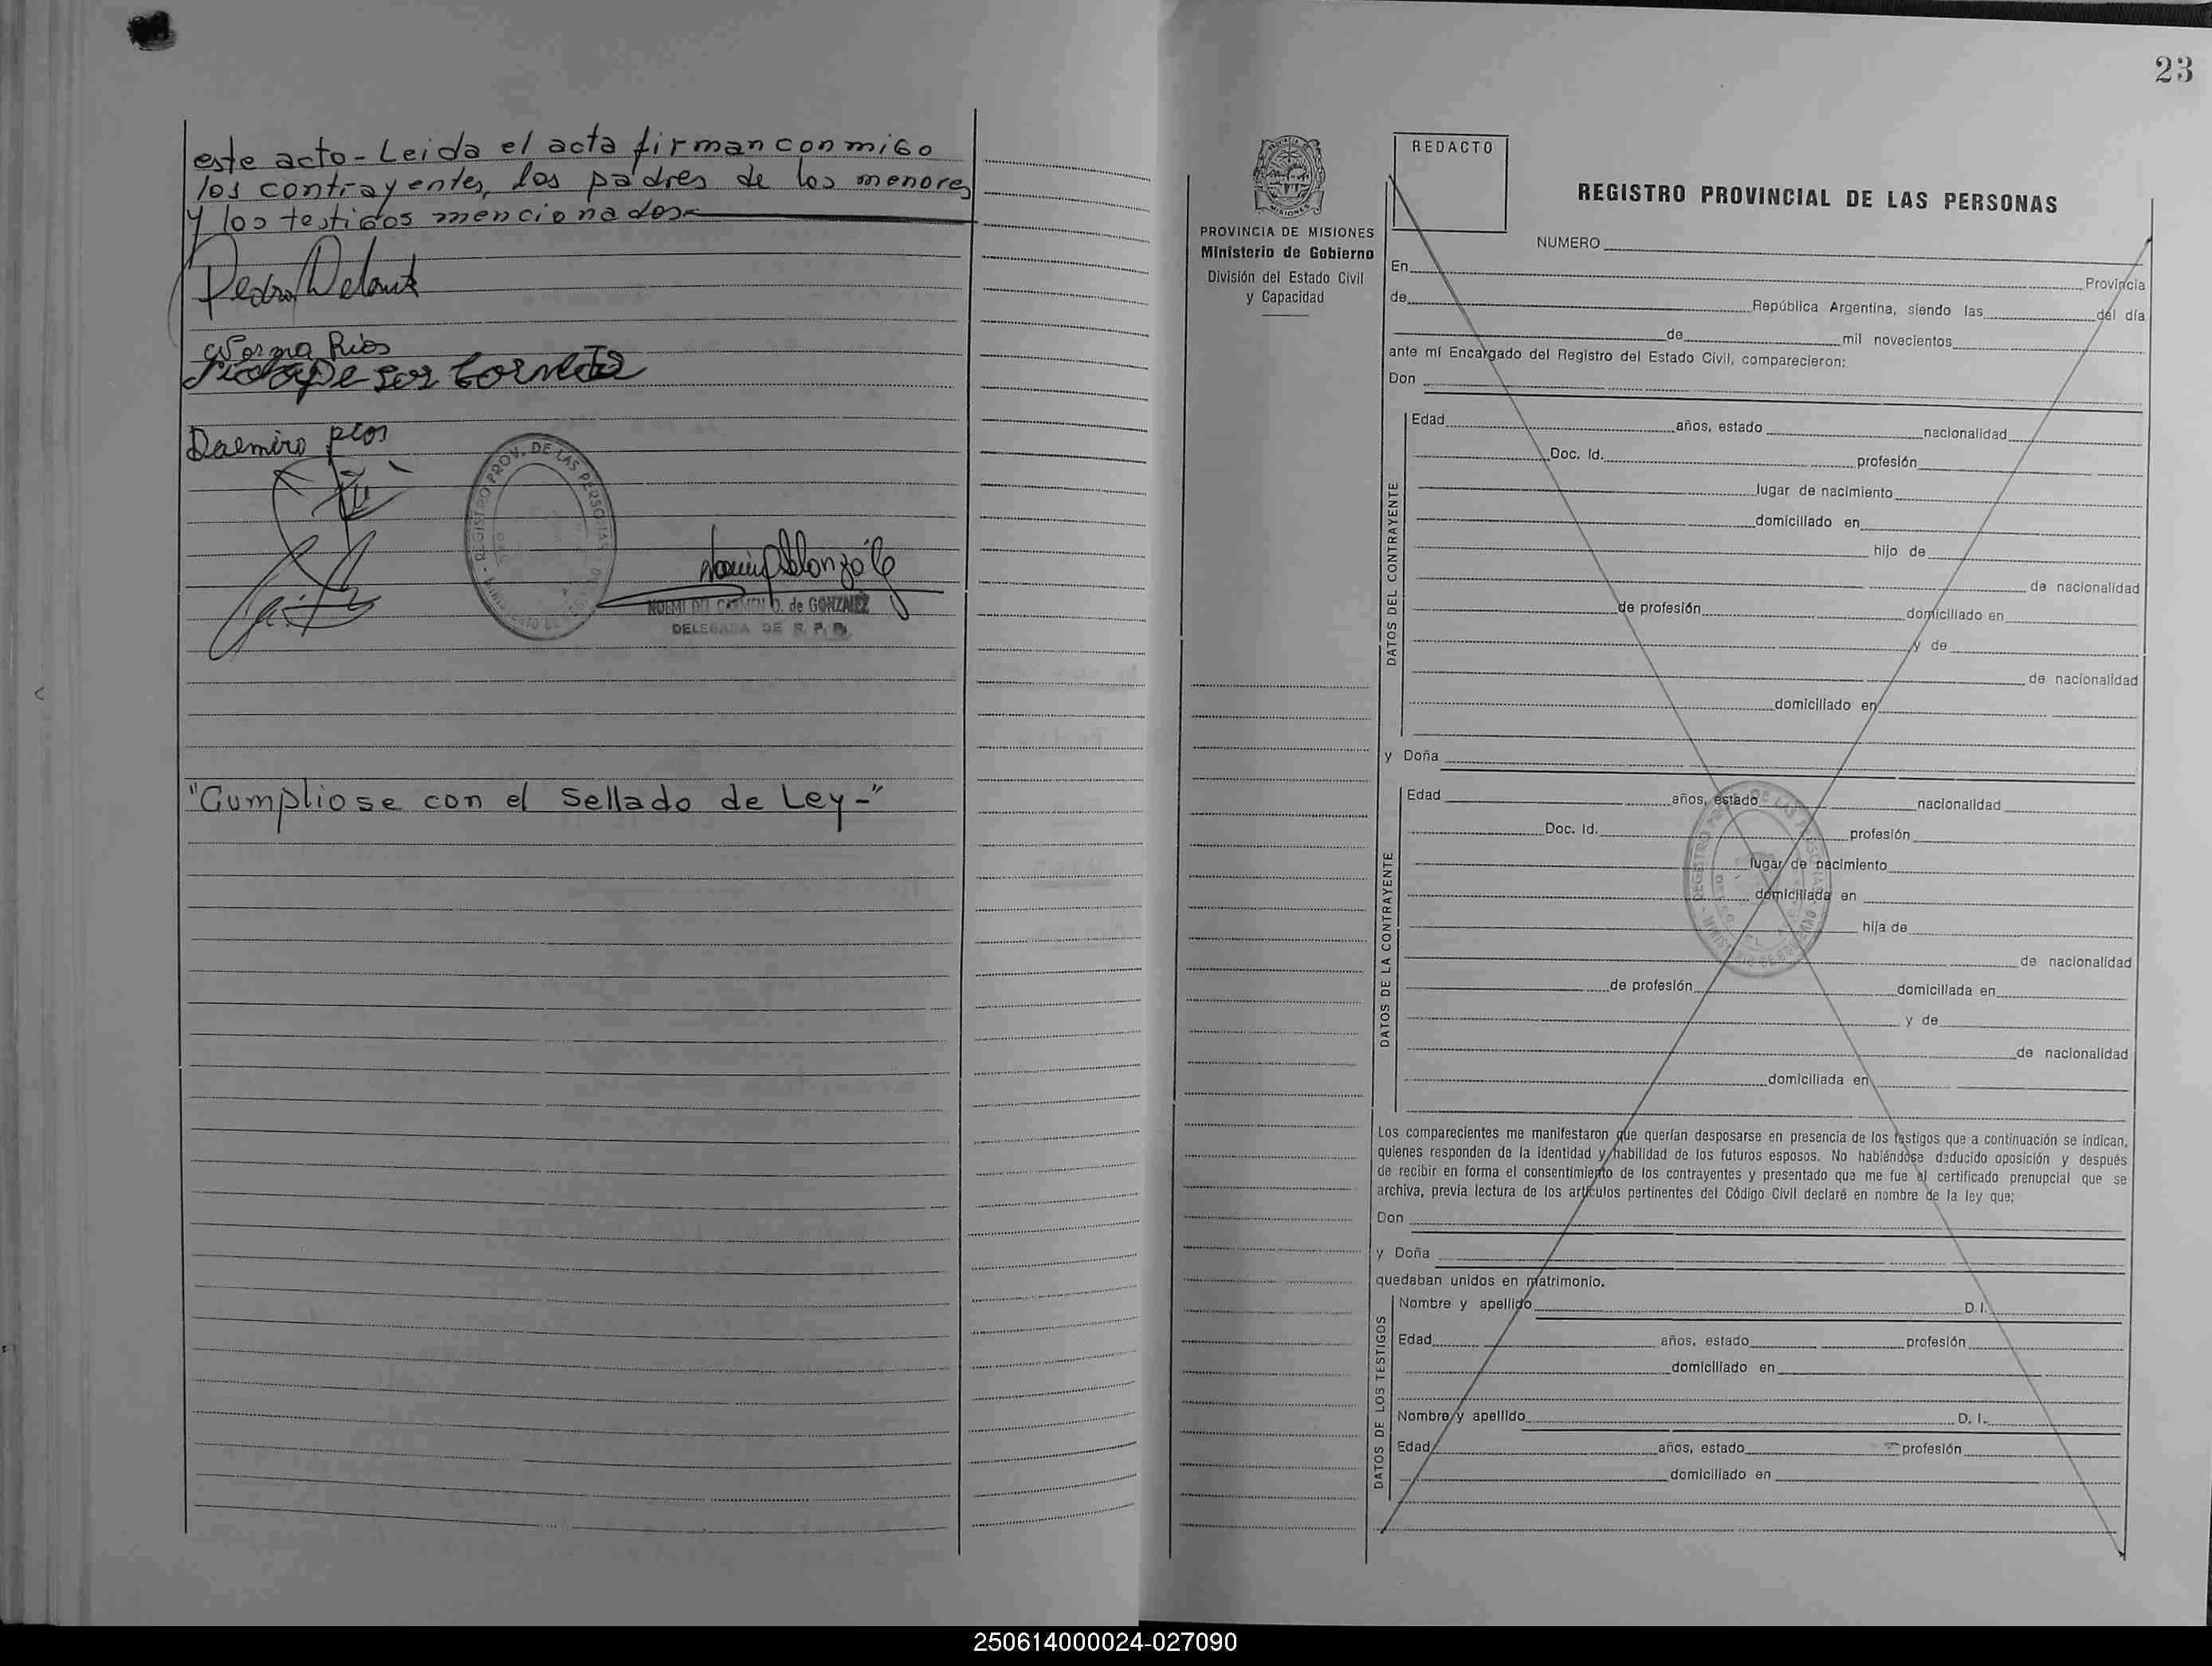 este acto - Leida el acta firman conmigo
los contrayentes, los padres de los menores
y los testigos mencionados.-
Pedro
Norma Rios
Daemiro Rios
REGISTRO PROV. DE LAS PERSONAS
NOEMI DEL CARMEN O. de GONZALEZ
DELEGADA DE R. P. P.
"Cumpliose con el Sellado de Ley-"
23
PROVINCIA DE MISIONES
Ministerio de Gobierno
División del Estado Civil
y Capacidad
REDACTO
REGISTRO PROVINCIAL DE LAS PERSONAS
NUMERO
En Provincia
de República Argentina, siendo las del día
de mil novecientos
ante mí Encargado del Registro del Estado Civil, comparecieron:
Don
DATOS DEL CONTRAYENTE
Edad años, estado nacionalidad
Doc. Id. profesión
lugar de nacimiento
domiciliado en
hijo de
de nacionalidad
de profesión domiciliado en
y de
de nacionalidad
domiciliado en
y Doña
DATOS DE LA CONTRAYENTE
Edad años, estado nacionalidad
Doc. Id. profesión
lugar de nacimiento
domiciliada en
hija de
de nacionalidad
de profesión domiciliada en
y de
de nacionalidad
domiciliada en
Los comparecientes me manifestaron que querían desposarse en presencia de los testigos que a continuación se indican,
quienes responden de la identidad y habilidad de los futuros esposos. No habiéndose deducido oposición y después
de recibir en forma el consentimiento de los contrayentes y presentado que me fue el certificado prenupcial que se
archiva, previa lectura de los artículos pertinentes del Código Civil declaré en nombre de la ley que;
Don
y Doña
quedaban unidos en matrimonio.
DATOS DE LOS TESTIGOS
Nombre y apellido D. I.
Edad años, estado profesión
domiciliado en
Nombre y apellido D. I.
Edad años, estado profesión
domiciliado en
250614000024-027090